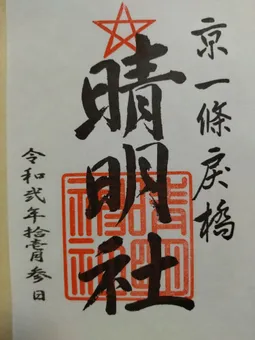 京一條戻橋
晴明社
令和弐年拾壱月参日